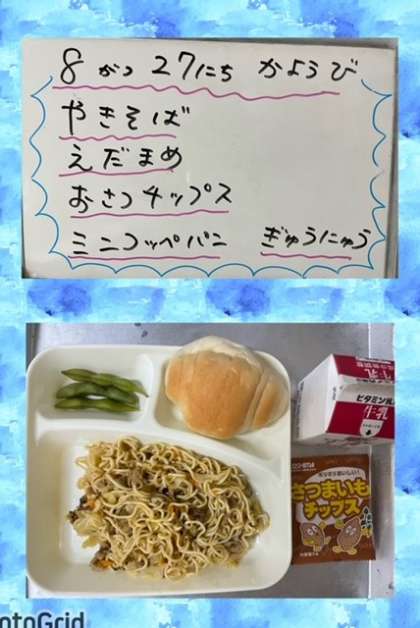 8がつ27にち かようび
やきそば
えだまめ
おさつチップス
ミニコッペパン ぎゅうにゅう
牛乳
ビタミン
牛乳
さつまいも
チップス
otoGrid